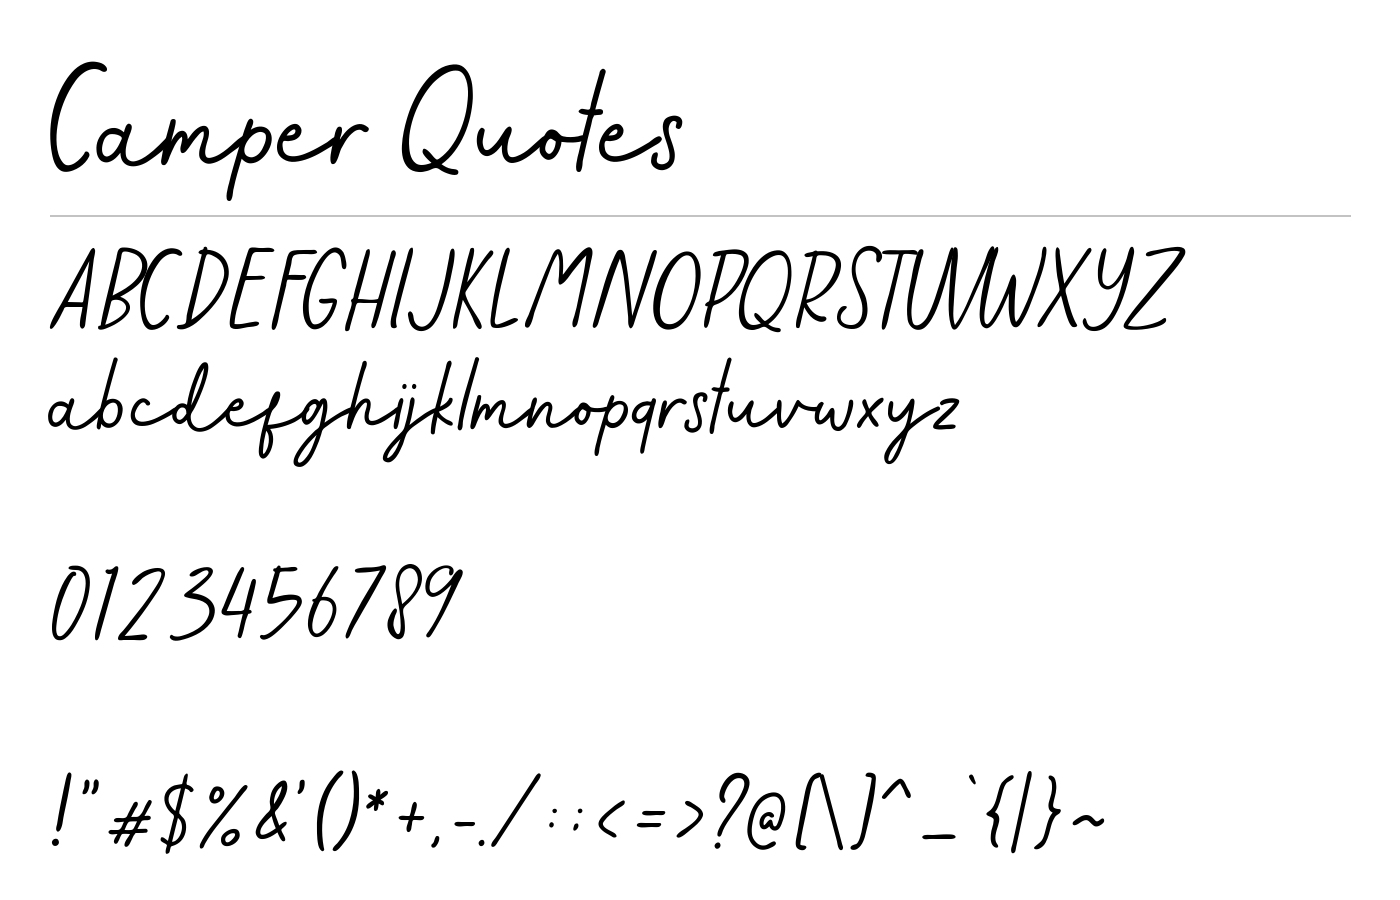 Camper Quotes
ABCDEFGHIJKLMNOPQRSTUVWXYZ
abcdefghijklmnopqrstuvwxyz
0123456789
!"#$%&'()*+,-./:;<=>?@[\]^_`{|}~